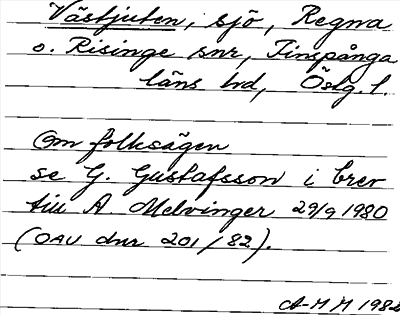 Västjuten, sjö, Regna
o. Risinge snr, Finspånga
läns hd, Östg. l.
Om folksägen
se G. Gustafsson i brev
till A Melvinger 29/9 1980
(OAU dnr 201/82).
A-M M 1982